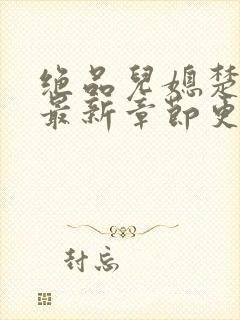 绝品儿媳楚
最新章节更
封忘